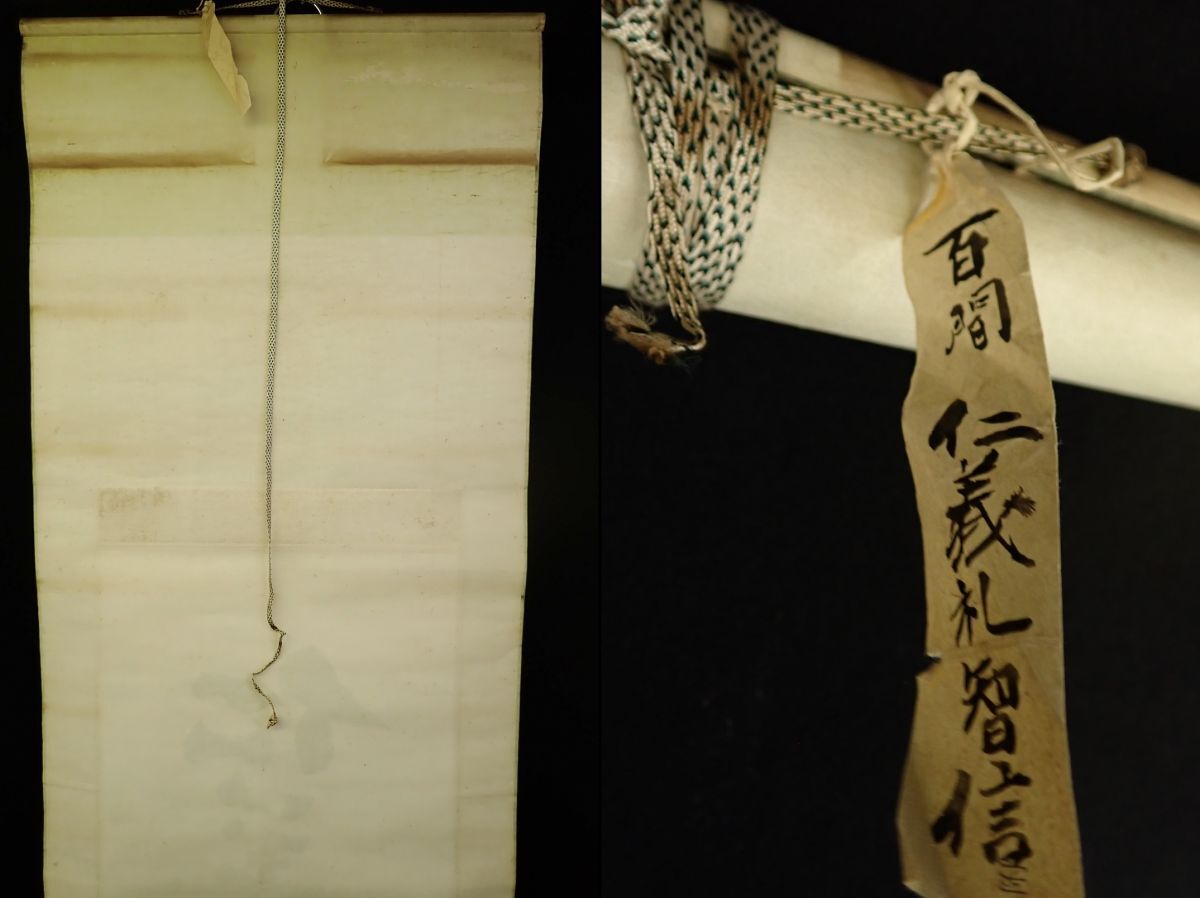 百間
仁義礼智信